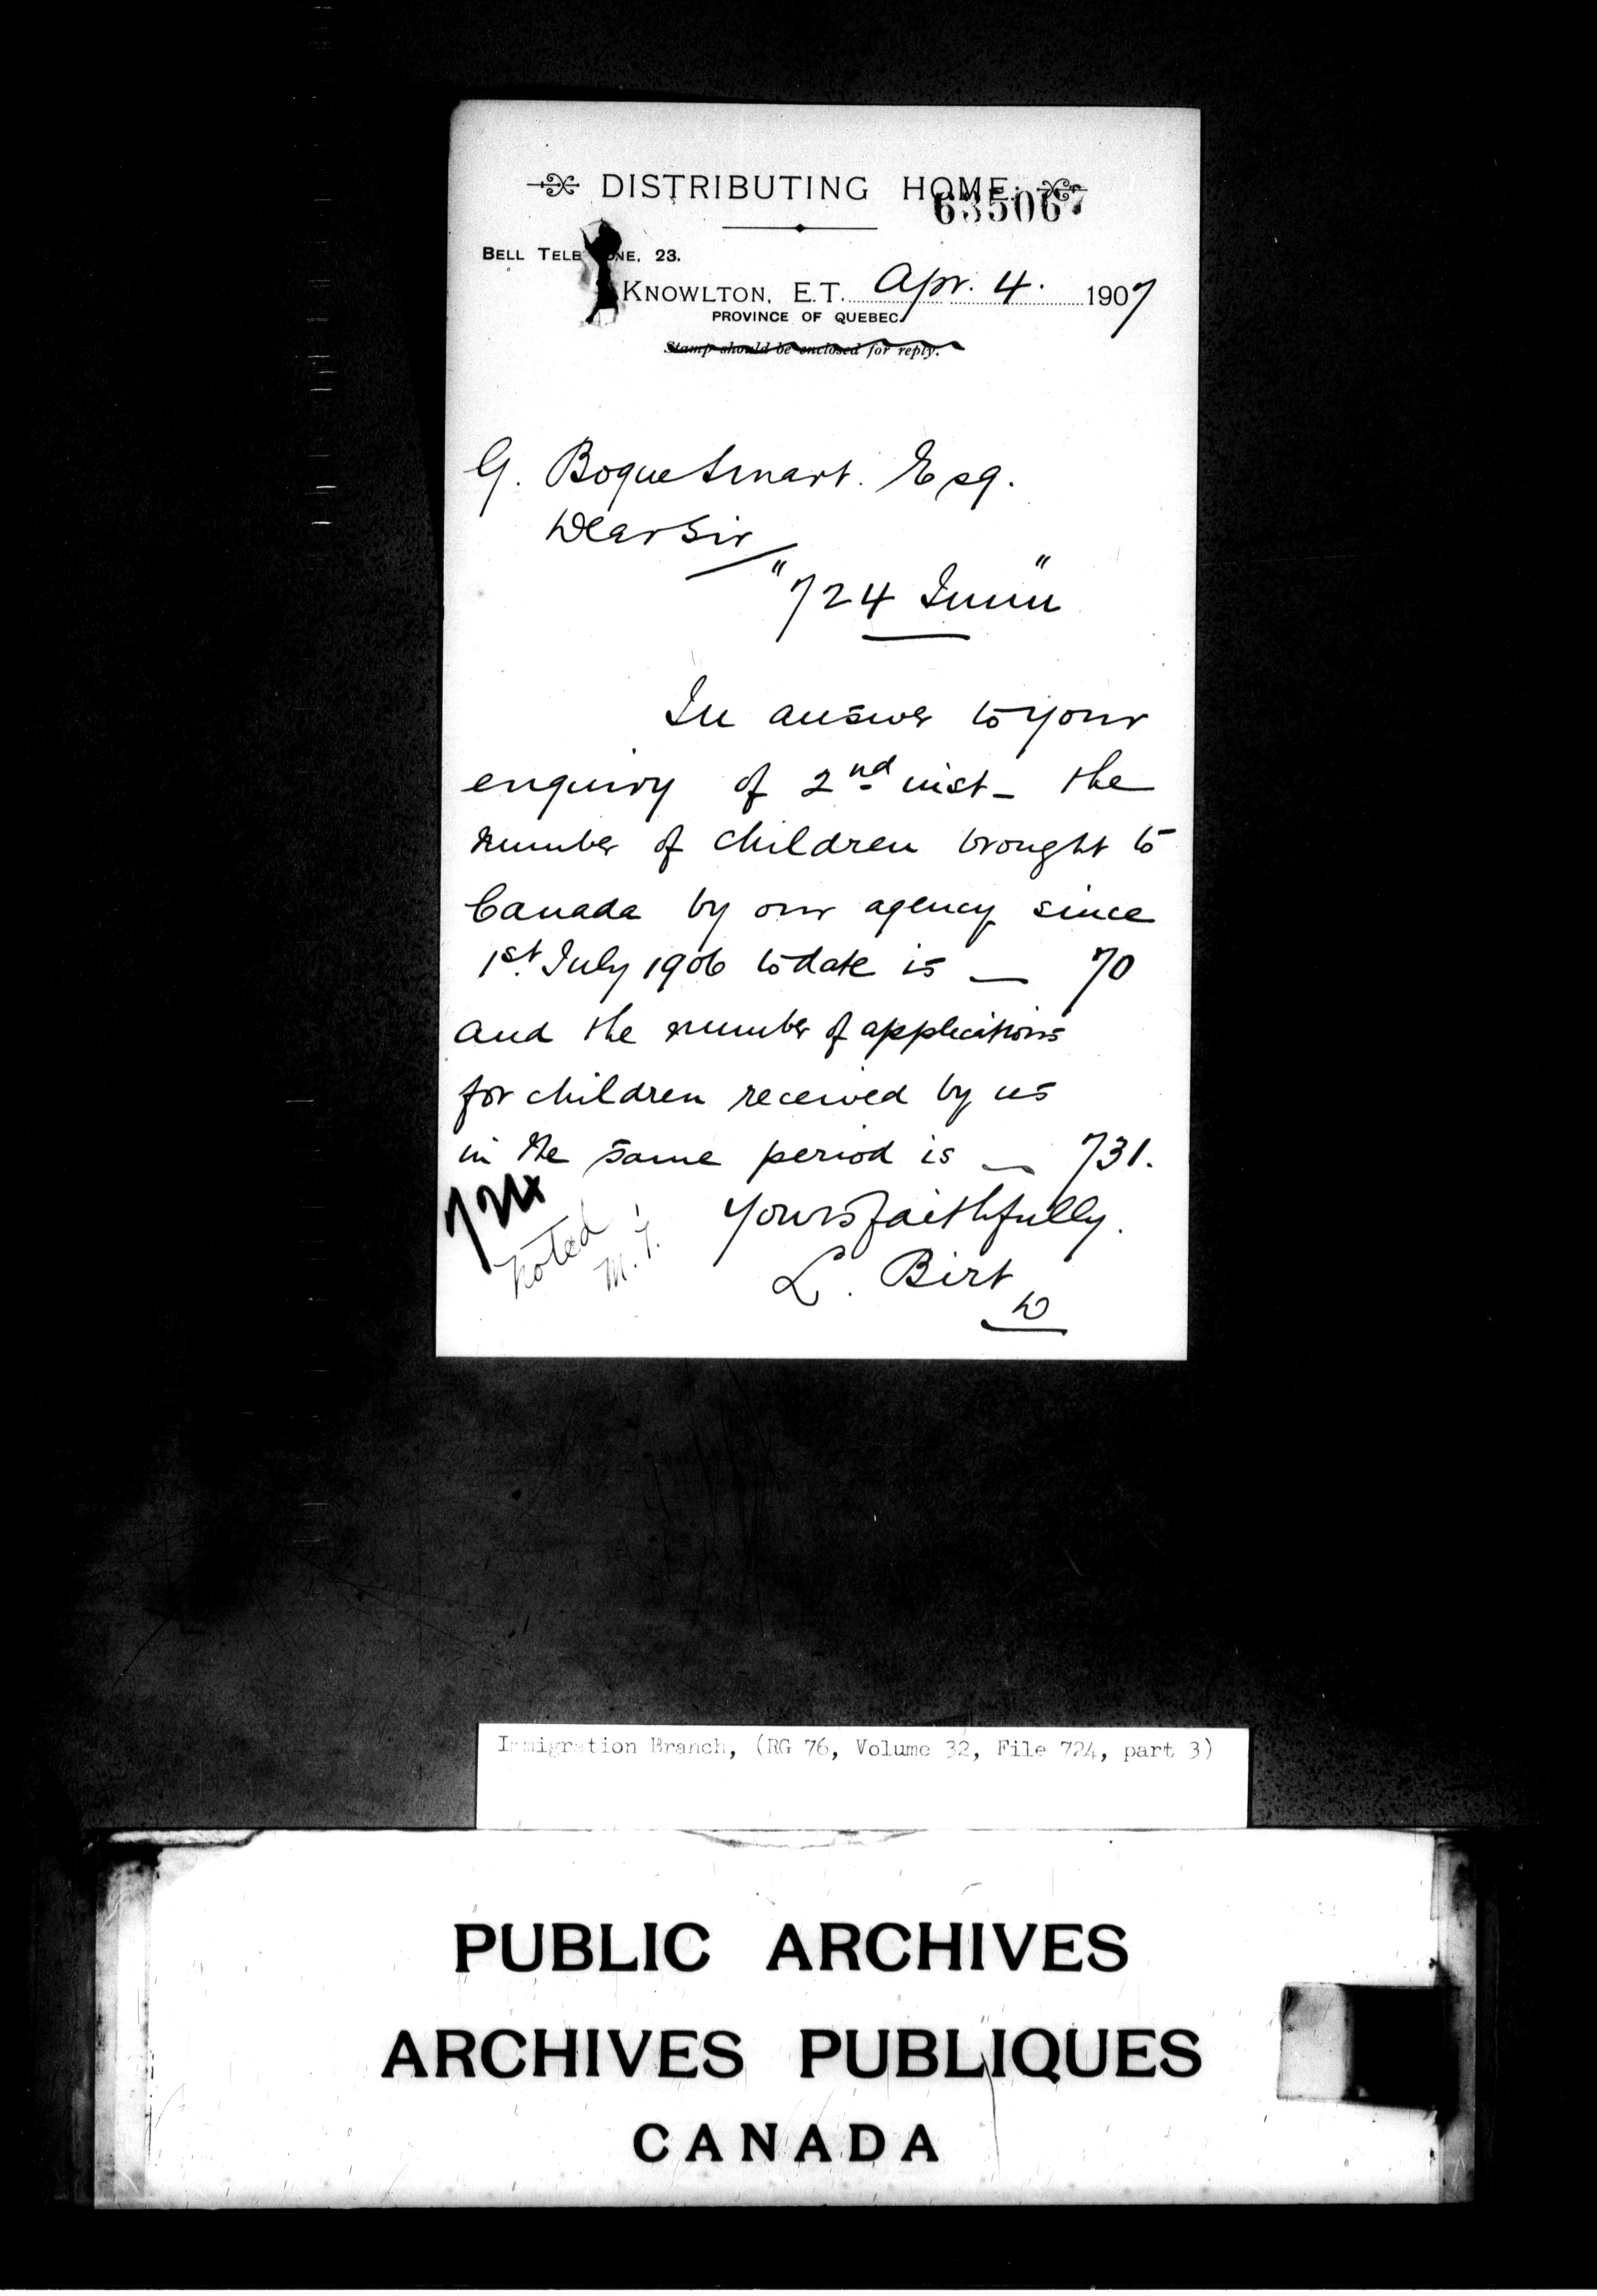 DISTRIBUTING HOME.
635067
BELL TELE NE, 23.
KNOWLTON, E.T. Apr. 4. 1907
PROVINCE OF QUEBEC
Stamp should be enclosed for reply.
G. Bogue Smart. Esq.
Dear Sir
"724 Imm"
In answer to your
enquiry of 2nd inst - the
number of children brought to
Canada by our agency since
1st July 1906 to date is — 70
and the number of applications
for children received by us
in the same period is — 731.
724
Yours faithfully.
noted
M.
L. Birt
Immigration Branch, (RG 76, Volume 32, File 724, part 3)
PUBLIC ARCHIVES
ARCHIVES PUBLIQUES
CANADA